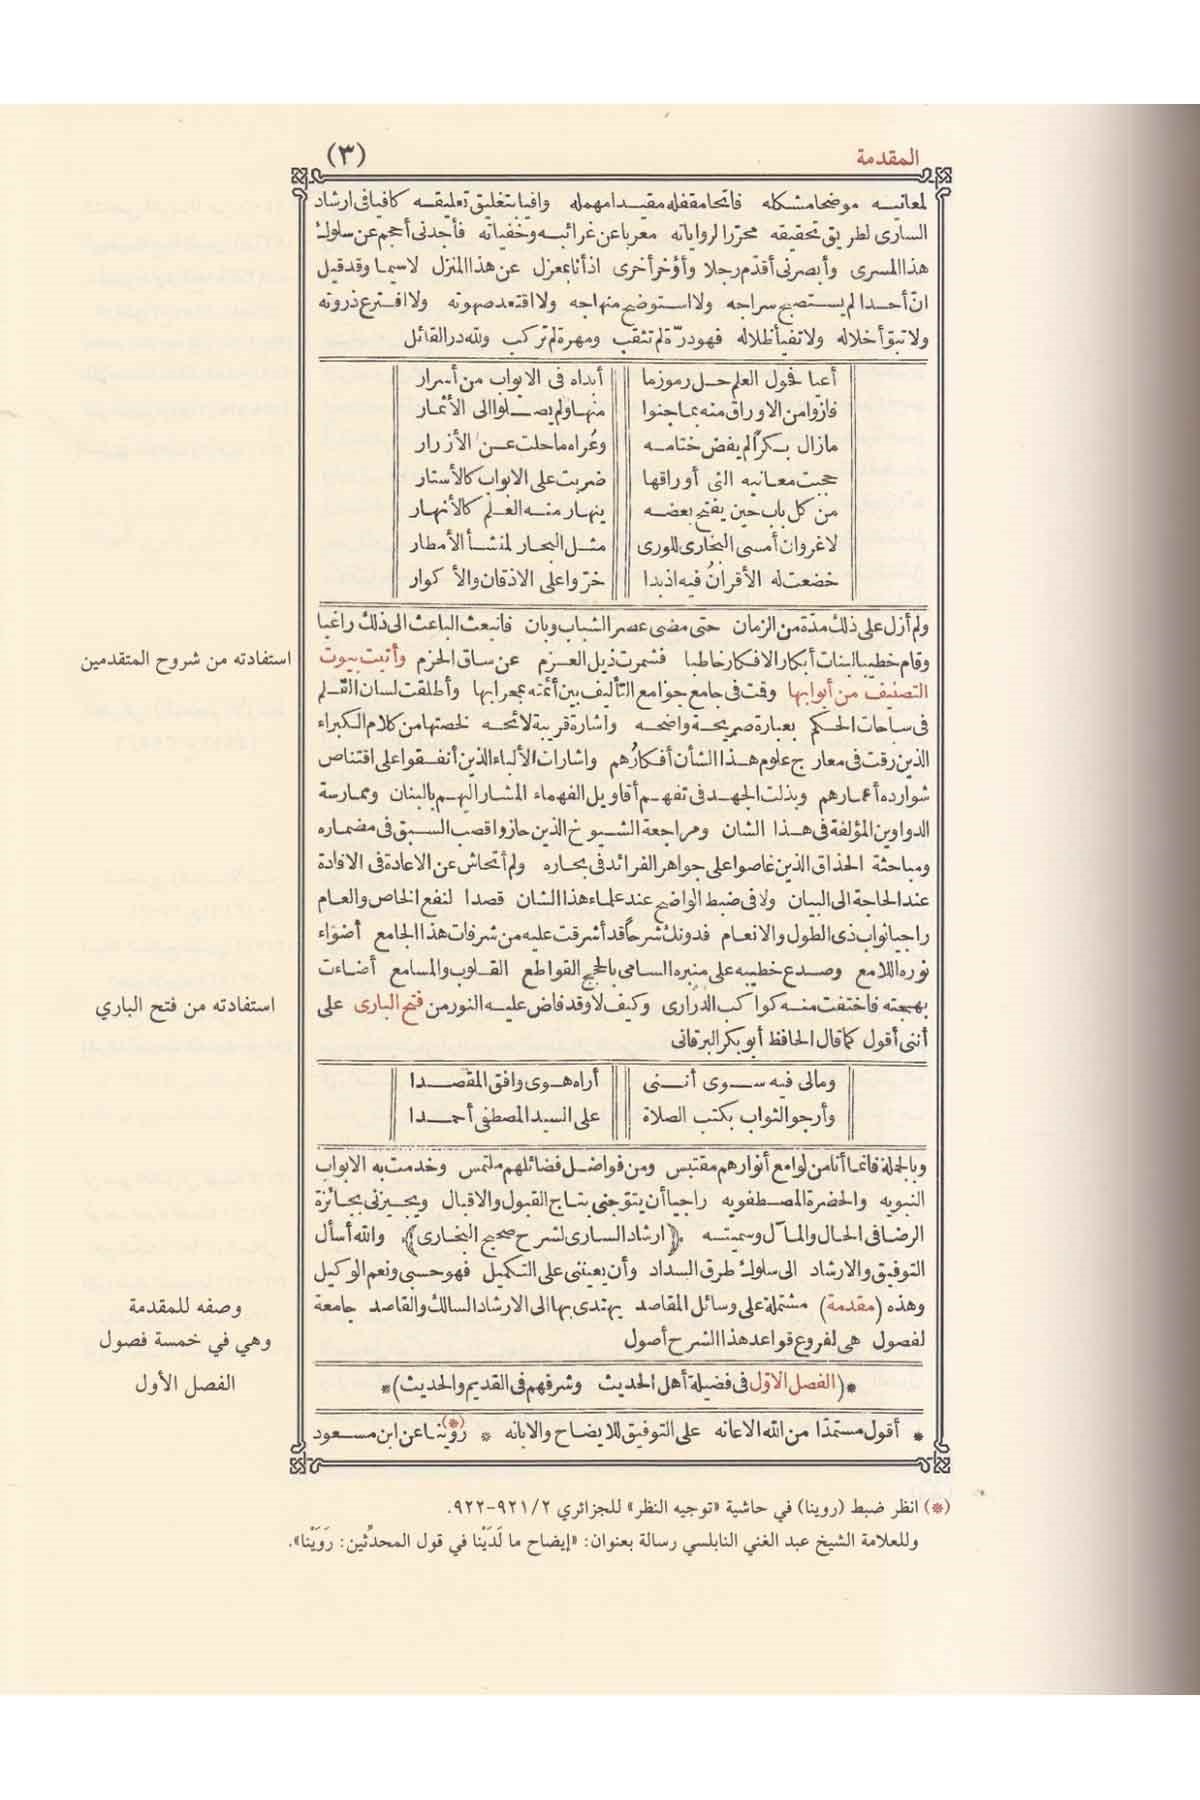 المقدمة
(٣)
لمعانيه موضحا مشكله فاتحا مقفله مقيدا مهمله وافيا بتغليق تعليقه كافيا فى ارشاد
السارى لطريق تحقيقه محررا لرواياته معربا عن غرائبه وخفياته فأجدنى أحجم عن سلوك
هذا المسرى وأبصرنى أقدّم رجلا وأؤخر أخرى اذ أنا بمعزل عن هذا المنزل لاسيما وقد قيل
انّ أحدا لم يستصبح سراجه ولا استوضح منهاجه ولا اقتعد صهوته ولا افترع ذروته
ولا تبوّأ خلاله ولا تفيأ ظلاله فهو درّة لم تثقب ومهرة لم تركب ولله در القائل
أعيا فحول العلم حل رموز ما أبداه فى الابواب من أسرار
فازوا من الاوراق منه بما جنوا منها ولم يصلوا الى الأثمار
مازال بكرًا لم يفض ختامه وعُراه ما حلت عن الأزرار
حجبت معانيه التى أوراقها ضربت على الابواب كالأستار
من كل باب حين يفتح بعضه ينهار منه العلم كالأنهار
لاغروان أمسى البخارى للورى مثل البحار لمنشأ الأمطار
خضعت له الأقرانُ فيه اذ بدا خرّوا على الاذقان والأكوار
ولم أزل على ذلك مدّة من الزمان حتى مضى عصر الشباب وبان فانبعث الباعث الى ذلك راغبا
وقام خطيبا لبنات أبكار الافكار خاطبا فشمرت ذيل العزم عن ساق الحزم وأتيت بيوت
التصنيف من أبوابها وقت فى جامع جوامع التأليف بين أئمته بمحرابها وأطلقت لسان القلم
فى ساحات الحكم بعبارة صريحة واضحه واشارة قريبة لائحه لخصتها من كلام الكبراء
الذين رقت فى معارج علوم هذا الشأن أفكارُهم واشارات الألباء الذين أنفقوا على اقتناص
شوارده أعمارهم وبذلت الجهد فى تفهم أقاويل الفهماء المشار اليهم بالبنان وممارسة
الدواوين المؤلفة فى هذا الشان ومراجعة الشيوخ الذين حازوا قصب السبق فى مضماره
ومباحثة الحذاق الذين غاصوا على جواهر الفرائد فى بحاره ولم أتحاش عن الاعادة فى الافادة
عند الحاجة الى البيان ولا فى ضبط الواضح عند علماء هذا الشان قصدا لنفع الخاص والعام
راجيا ثواب ذى الطول والانعام فدونك شرحًا قد أشرقت عليه من شرفات هذا الجامع أضواء
نوره اللامع وصدع خطيبه على منبره السامى بالحجج القواطع القلوب والمسامع أضاءت
بهجته فاختفت منه كواكب الدرارى وكيف لا وقد فاض عليه النور من فتح البارى على
أننى أقول كما قال الحافظ أبو بكر البرقانى
ومالى فيه سوى أننى أراه هوى وافق المقصدا
وأرجو الثواب بكتب الصلاة على السيد المصطفى أحمدا
وبالجملة فانما أنا من لوامع أنوارهم مقتبس ومن فواضل فضائلهم ملتمس وخدمت به الابواب
النبويه والحضرة المصطفويه راجيا أن يتوّجنى بتاج القبول والاقبال ويجيزنى بجائزة
الرضا فى الحال والمآل وسميته ﴿ارشاد السارى لشرح صحيح البخارى﴾ والله أسأل
التوفيق والارشاد الى سلوك طرق السداد وأن يعيننى على التكميل فهو حسبى ونعم الوكيل
وهذه (مقدمة) مشتملة على وسائل المقاصد يهتدى بها الى الارشاد السالك والقاصد جامعة
لفصول هى لفروع قواعد هذا الشرح أصول
*(الفصل الاوّل فى فضيلة أهل الحديث وشرفهم فى القديم والحديث)*
* أقول مستمدّا من الله الاعانه على التوفيق للايضاح والابانه * روّينا(*) عن ابن مسعود
استفادته من شروح المتقدمين
استفادته من فتح الباري
وصفه للمقدمة
وهي في خمسة فصول
الفصل الأول
(*) انظر ضبط (روينا) في حاشية «توجيه النظر» للجزائري ٢/ ٩٢١-٩٢٢.
وللعلامة الشيخ عبد الغني النابلسي رسالة بعنوان: «إيضاح ما لَدَيْنا في قول المحدِّثين: رَوَيْنا».